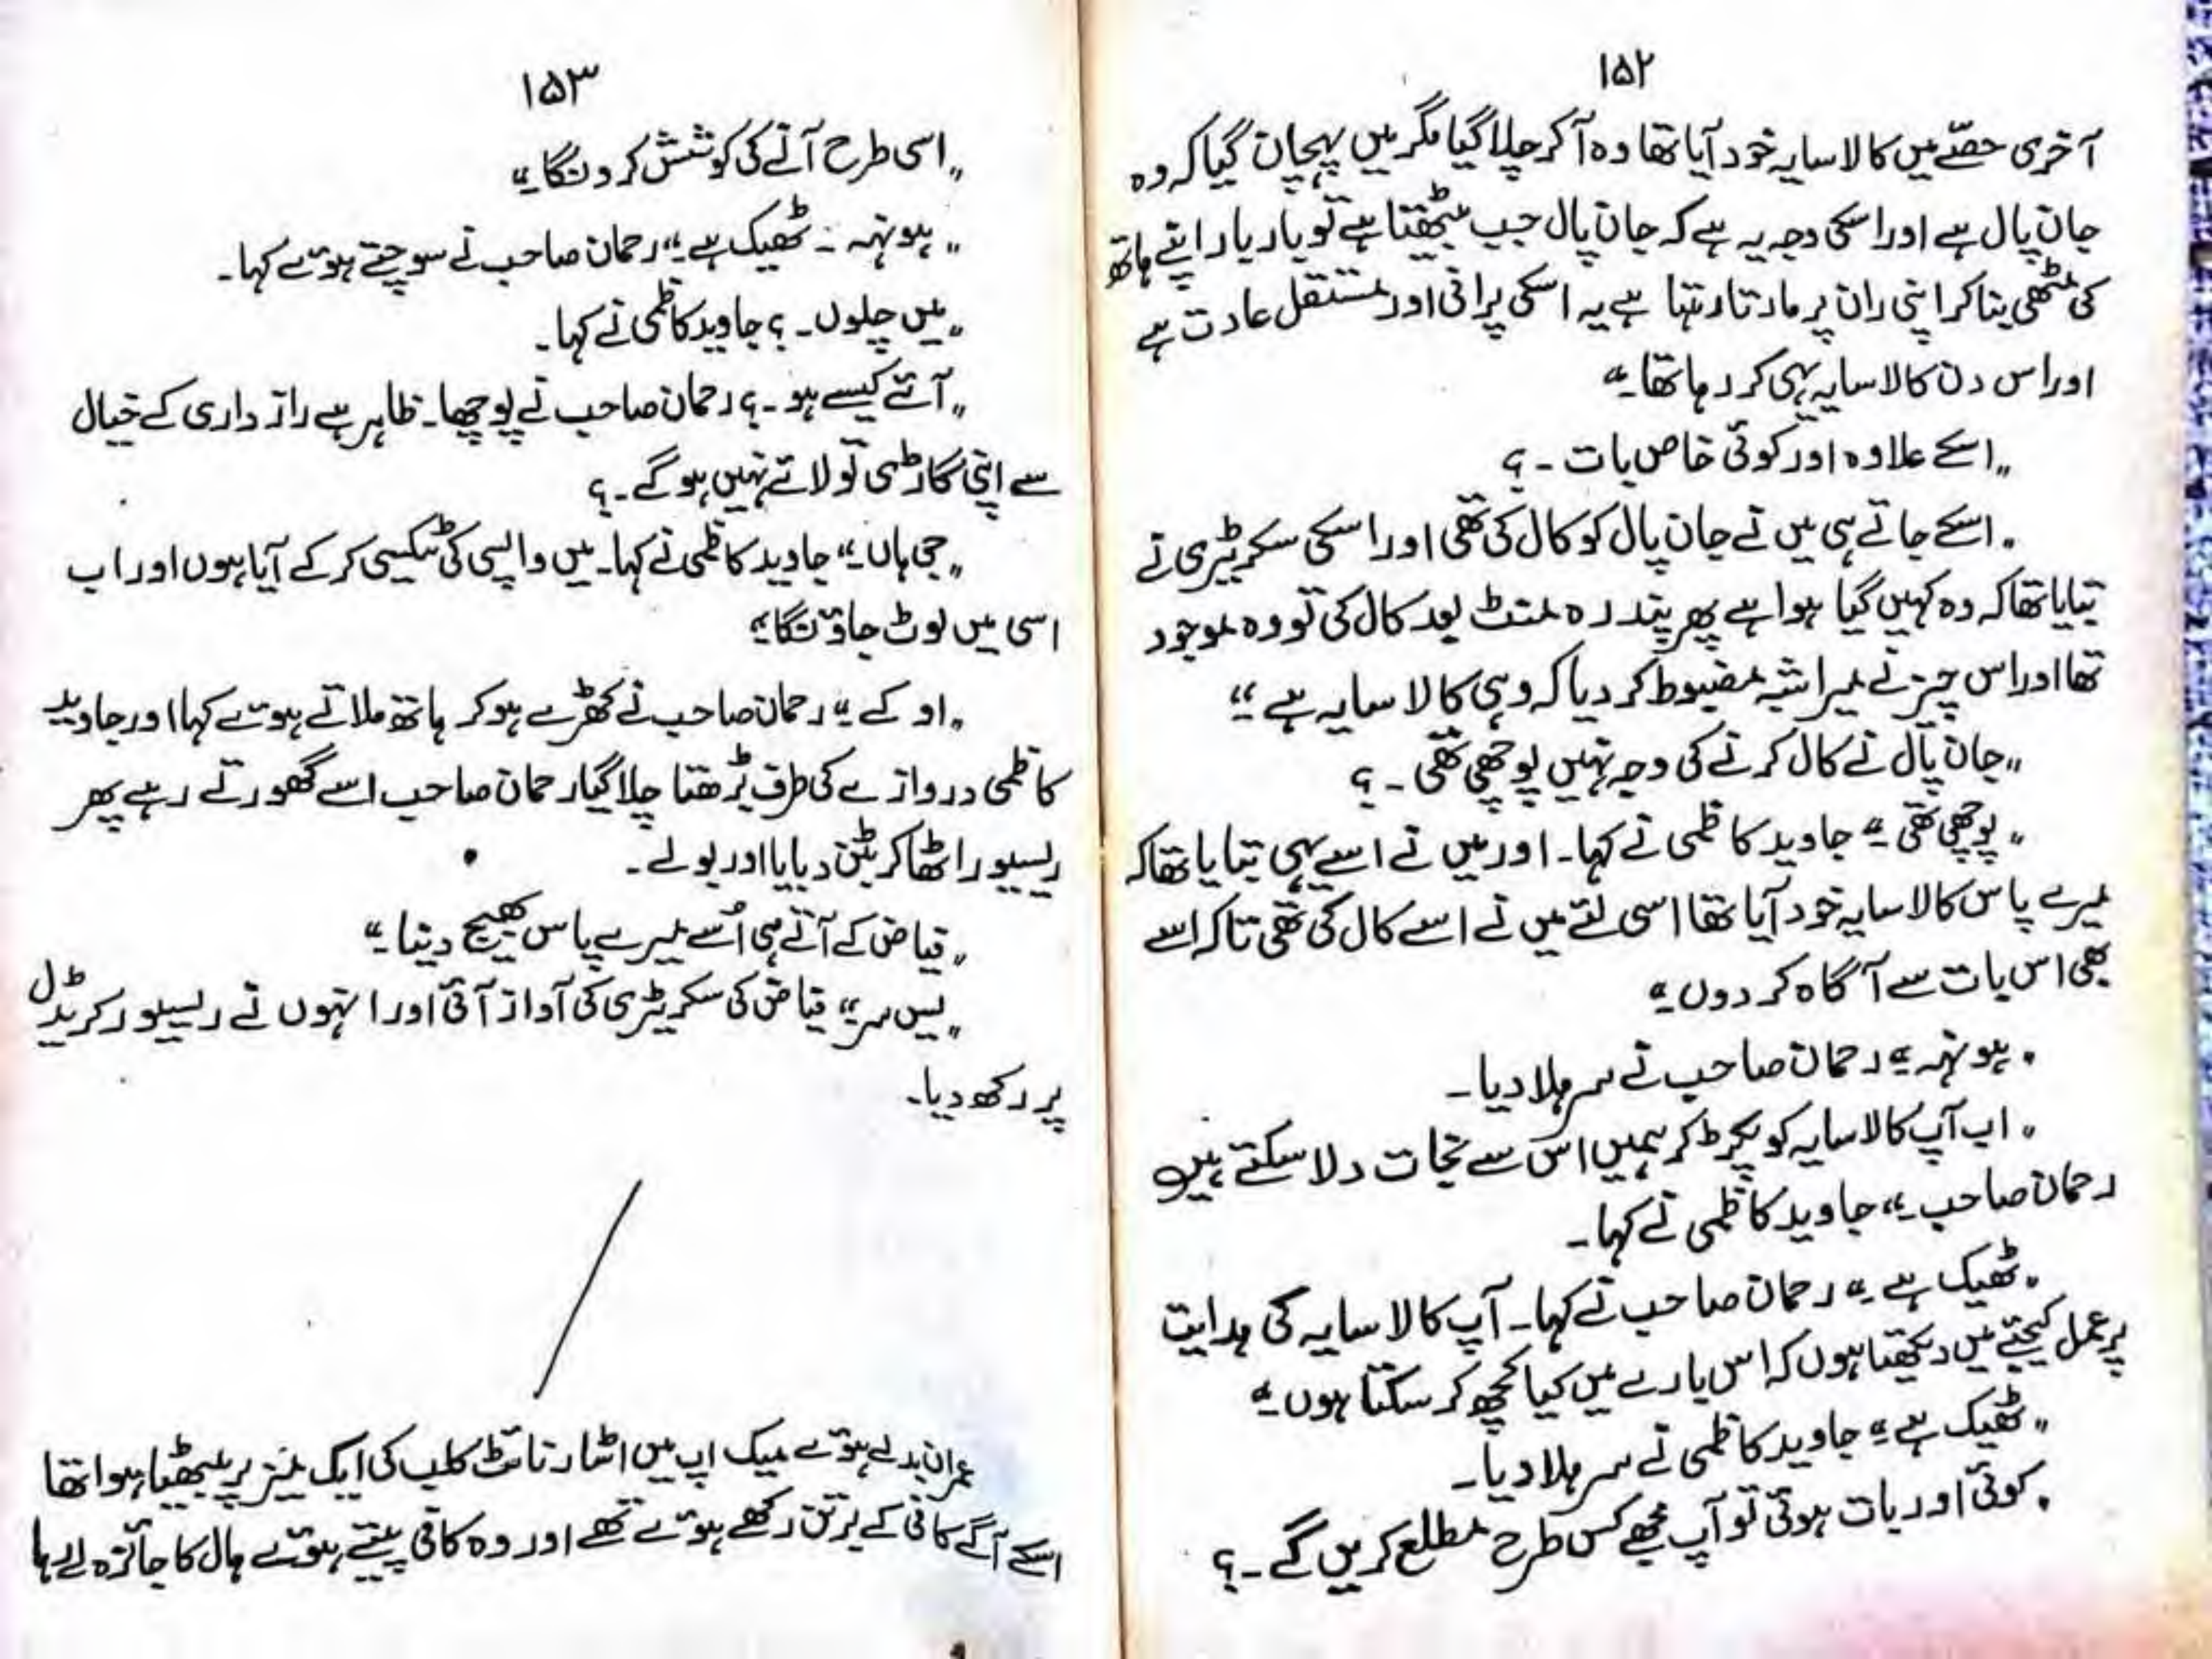 ۱۵۲
آخری حصّے میں کالا سایہ خود آیا تھا وہ آ کر چلا گیا مگر میں پہچان گیا کہ وہ
جان پال ہے اور اسکی وجہ یہ ہے کہ جان پال جب بیٹھتا ہے تو بار بار اپنے ہاتھ
کی مٹھی بنا کر اپنی ران پر مارتا رہتا ہے یہ اسکی پرانی اور مستقل عادت ہے
اور اس دن کالا سایہ یہی کر رہا تھا۔“
„اسکے علاوہ اور کوئی خاص بات ۔ ؟
„اسکے جاتے ہی میں نے جان پال کو کال کی تھی اور اسکی سکریٹری نے
بتایا تھا کہ وہ کہیں گیا ہوا ہے پھر پندرہ منٹ بعد کال کی تو وہ موجود
تھا اور اس چیز نے میرا شبہ مضبوط کر دیا کہ وہی کالا سایہ ہے ۔“
„جان پال نے کال کرنے کی وجہ نہیں پوچھی تھی ۔ ؟
„پوچھی تھی ۔“ جاوید کاظمی نے کہا۔ اور میں نے اسے یہی بتایا تھا کہ
میرے پاس کالا سایہ خود آیا تھا اسی لئے میں نے اسے کال کی تھی تاکہ اسے
بھی اس بات سے آگاہ کر دوں ۔“
„ہونہہ ۔“ رحمان صاحب نے سر ہلا دیا ۔
„اب آپ کالا سایہ کو پکڑ کر ہمیں اس سے نجات دلا سکتے ہیں
رحمان صاحب ۔“ جاوید کاظمی نے کہا ۔
„ٹھیک ہے ۔“ رحمان صاحب نے کہا ۔ آپ کالا سایہ کی ہدایت
پر عمل کیجئے میں دیکھتا ہوں کہ اس بارے میں کیا کچھ کر سکتا ہوں ۔“
„ٹھیک ہے ۔“ جاوید کاظمی نے سر ہلا دیا ۔
„کوئی اور بات ہوئی تو آپ مجھے کس طرح مطلع کریں گے ۔ ؟
۱۵۳
„اسی طرح آنے کی کوشش کرونگا ۔“
„ہونہہ ۔ ٹھیک ہے ۔“ رحمان صاحب نے سوچتے ہوئے کہا ۔
„میں چلوں ۔ ؟ جاوید کاظمی نے کہا ۔
„آئے کیسے ہو ۔ ؟ رحمان صاحب نے پوچھا ۔ ظاہر ہے راز داری کے خیال
سے اپنی گاڑی تو لائے نہیں ہوگے ۔ ؟
„جی ہاں ۔“ جاوید کاظمی نے کہا ۔ میں واپسی کی ٹیکسی کر کے آیا ہوں اور اب
اسی میں لوٹ جاؤنگا ۔“
„او کے ۔“ رحمان صاحب نے کھڑے ہو کر ہاتھ ملاتے ہوئے کہا اور جاوید
کاظمی دروازے کی طرف بڑھتا چلا گیا رحمان صاحب اسے گھورتے رہے پھر
ریسیور اٹھا کر بٹن دبایا اور بولے ۔
„فیاض کے آتے ہی اُسے میرے پاس بھیج دینا ۔“
„یس سر ۔“ فیاض کی سکریٹری کی آواز آئی اور انہوں نے ریسیور کریڈل
پر رکھ دیا ۔
عمران بدلے ہوئے میک اپ میں اسٹار نائٹ کلب کی ایک میز پر بیٹھا ہوا تھا
اسکے آگے کافی کے برتن رکھے ہوئے تھے اور وہ کافی پیتے ہوئے ہال کا جائزہ لے رہا